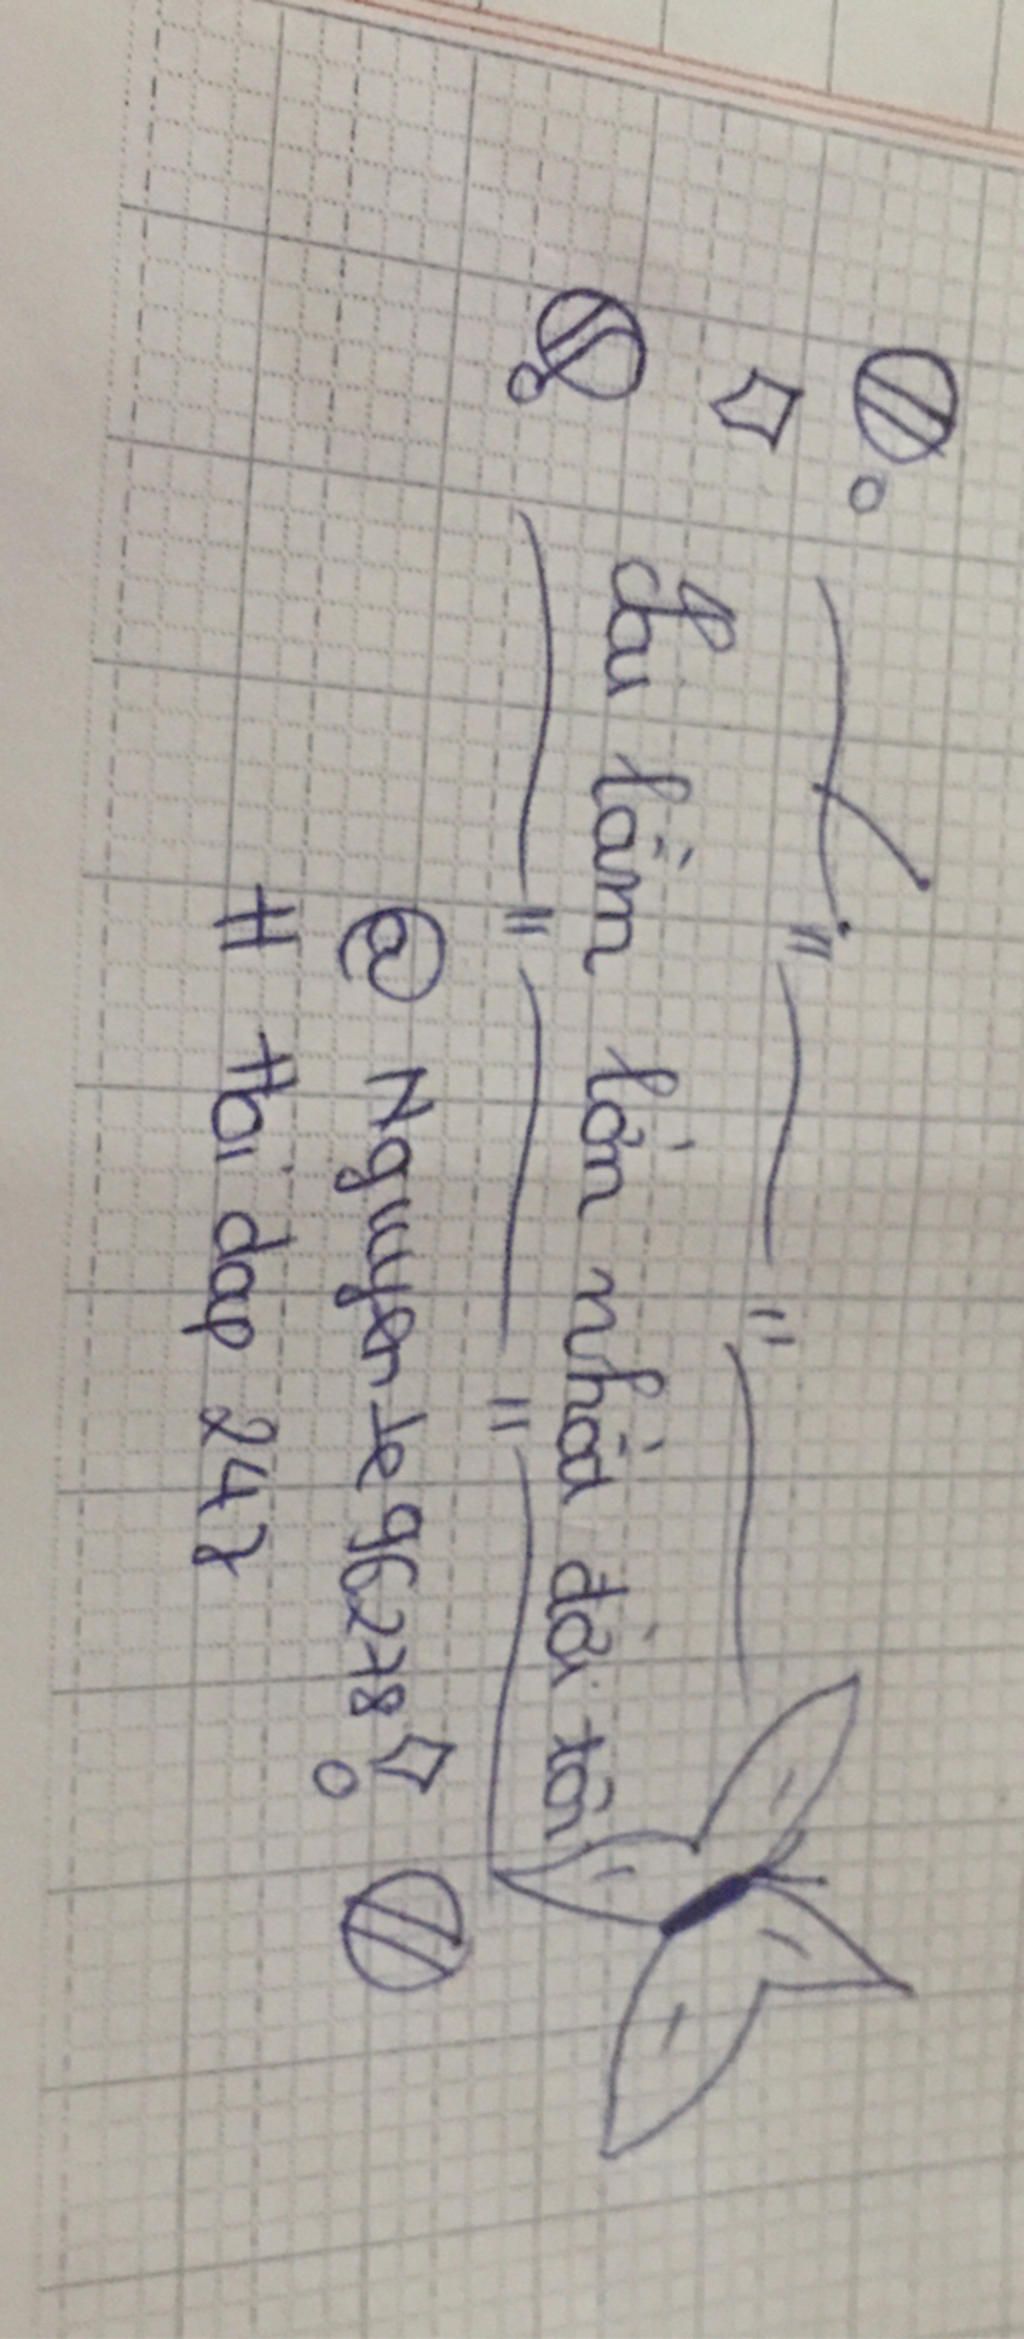 Sai lầm lớn nhất đời tôi
@ Nguyen Je 96278
# Hoi dap 247